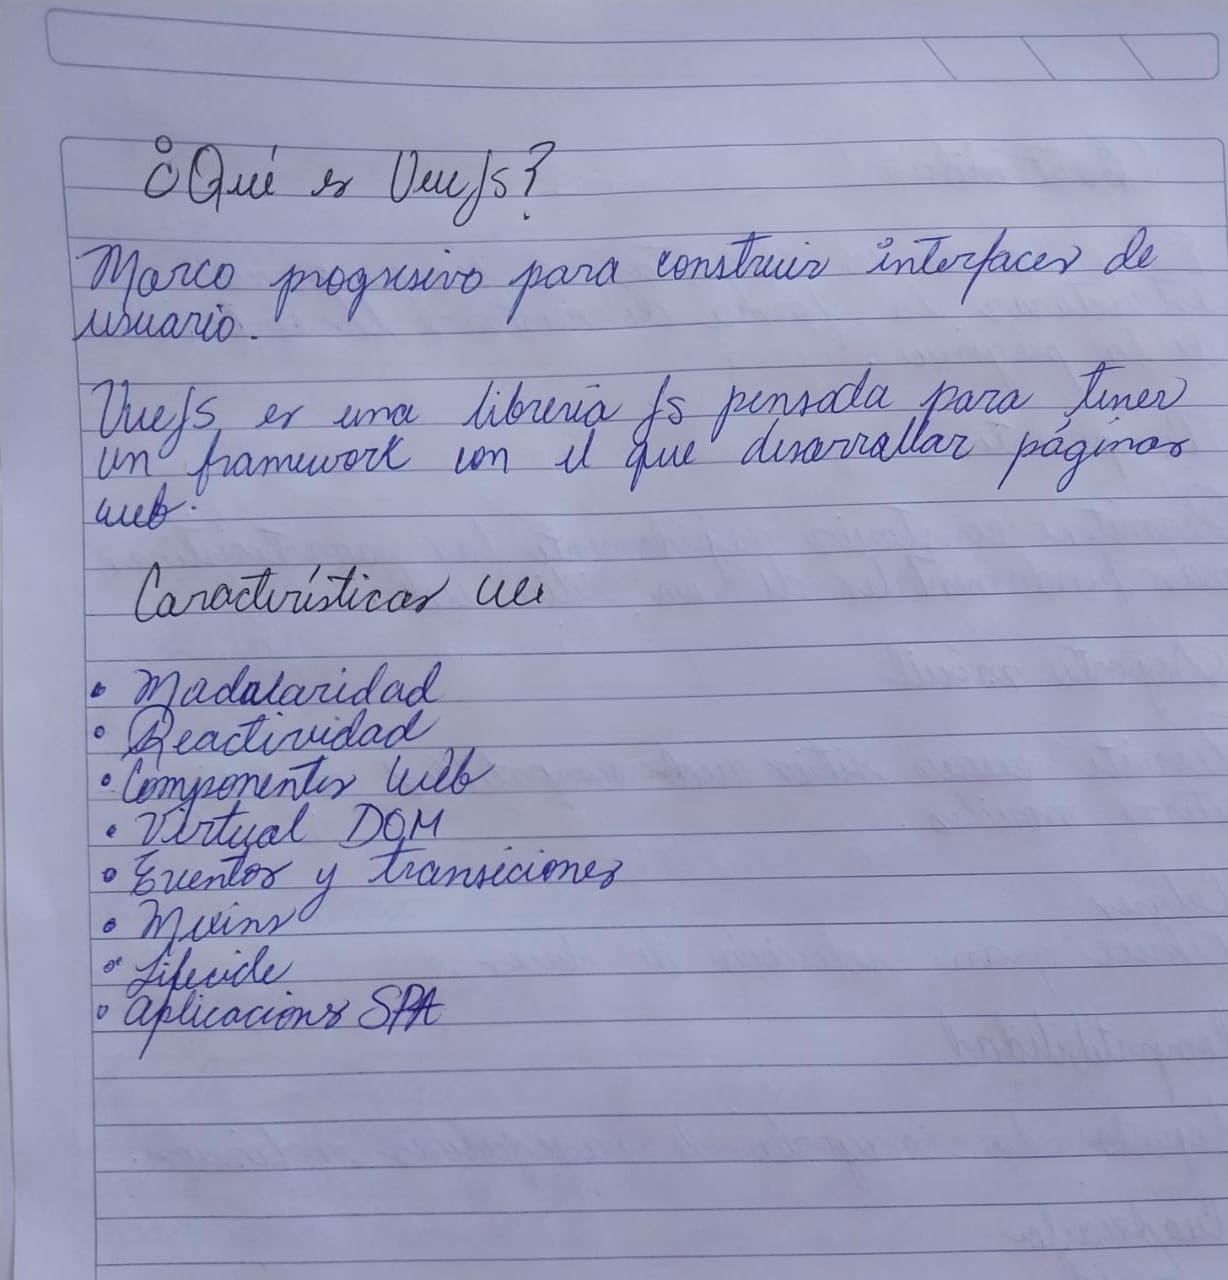 ¿Qué es VueJs?
Marco progresivo para construir interfaces de
usuario.
VueJS es una librería Js pensada para tener
un framework con el que desarrollar páginas
web.
Características
• Modularidad
• Reactividad
• Componentes Web
• Virtual DOM
• Eventos y transiciones
• Mixins
• Lifecicle
• Aplicaciones SPA